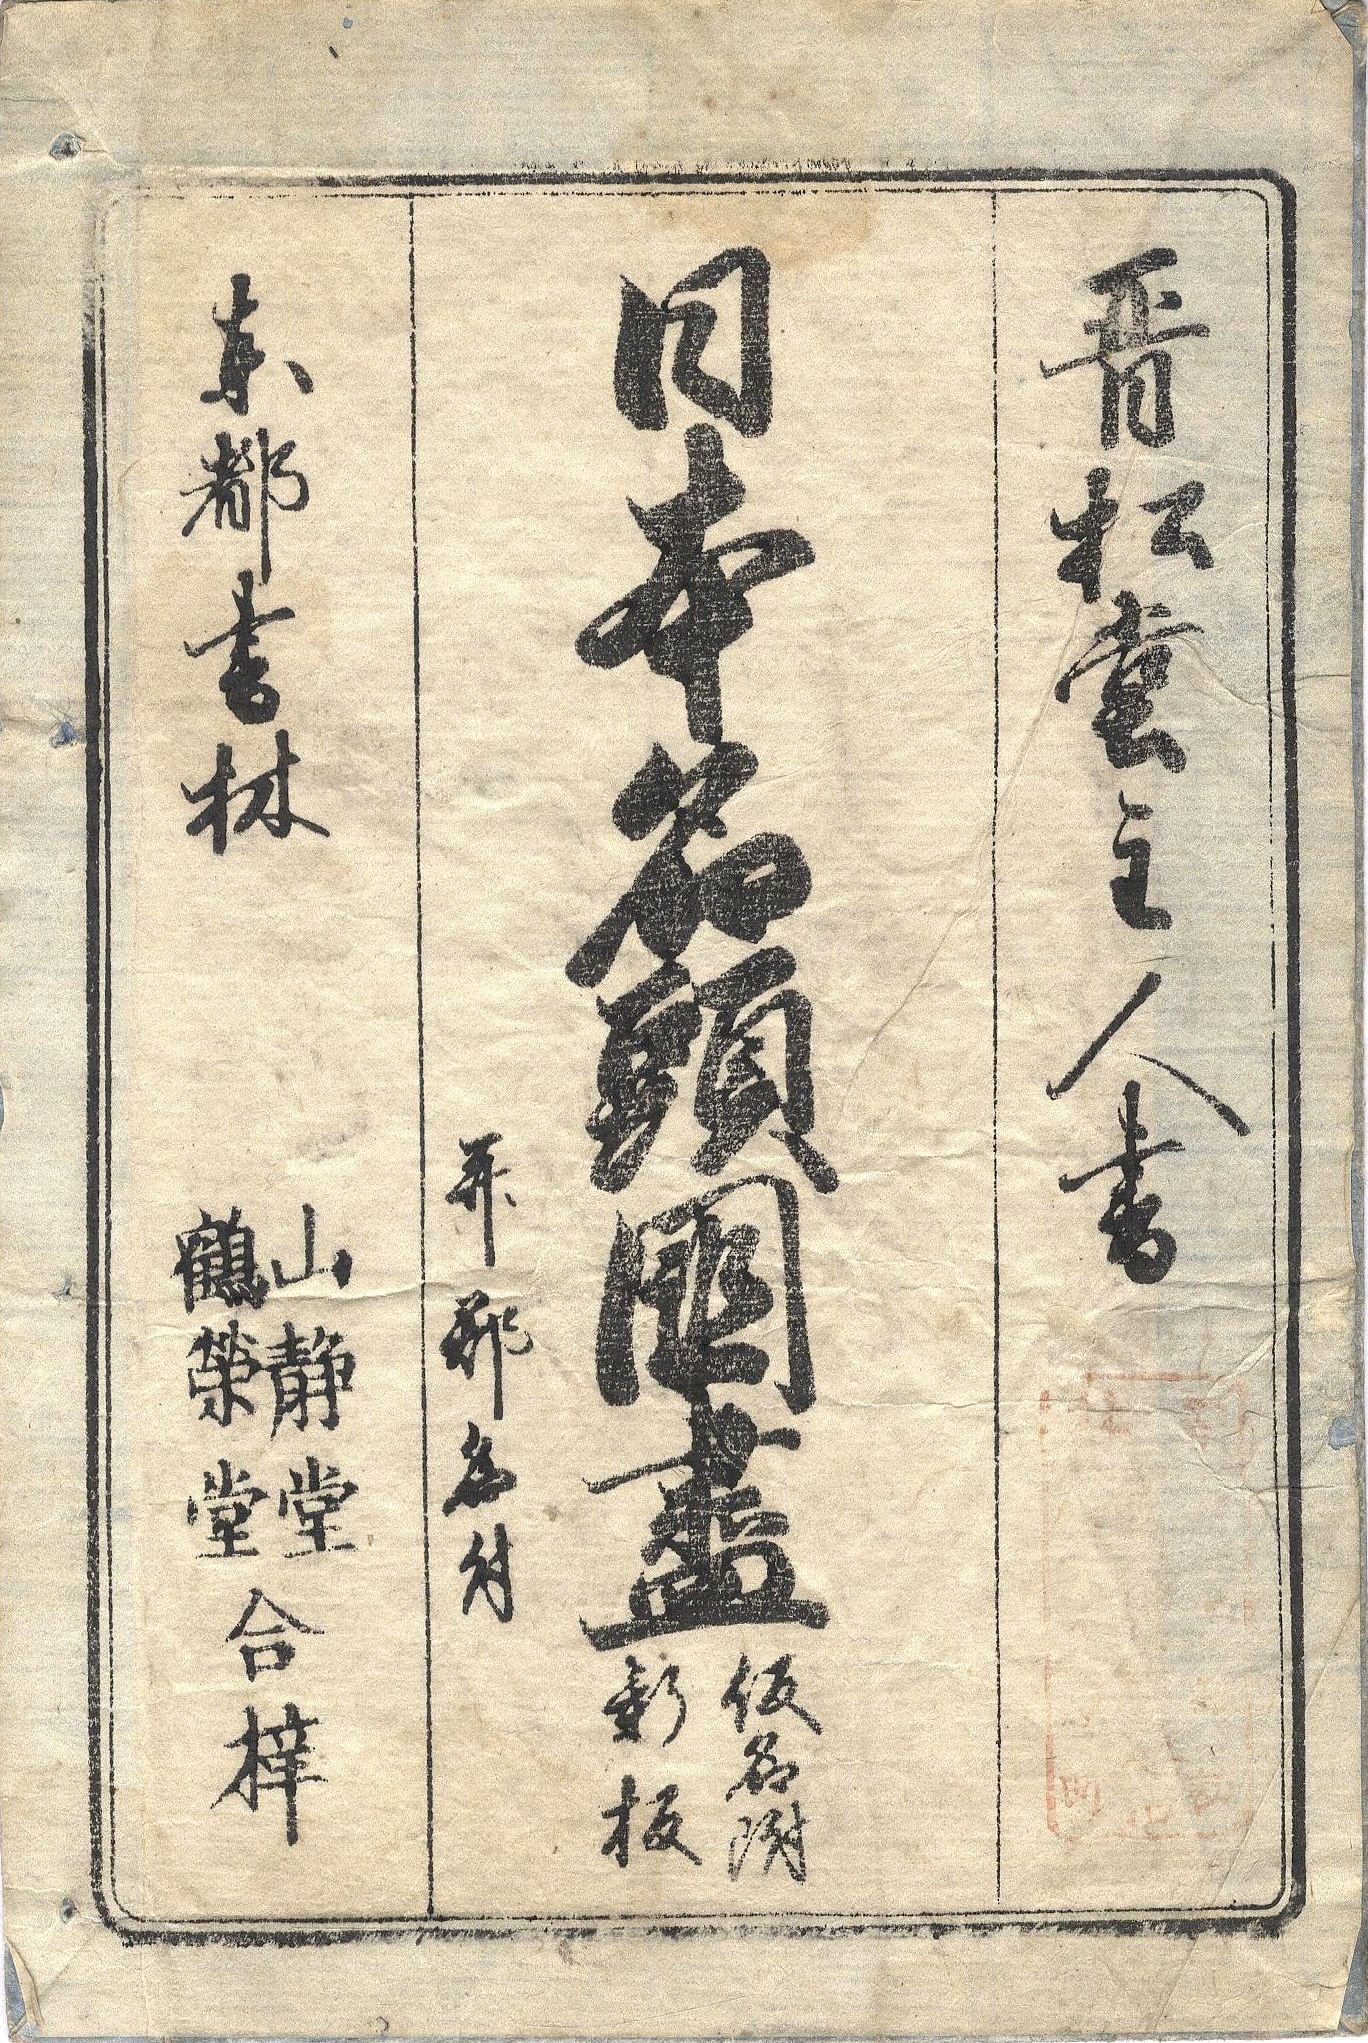 晋松堂主人書
日本名頭國盡
仮名附
新板
并郡名付
東都書林
山静堂
鶴榮堂
合梓